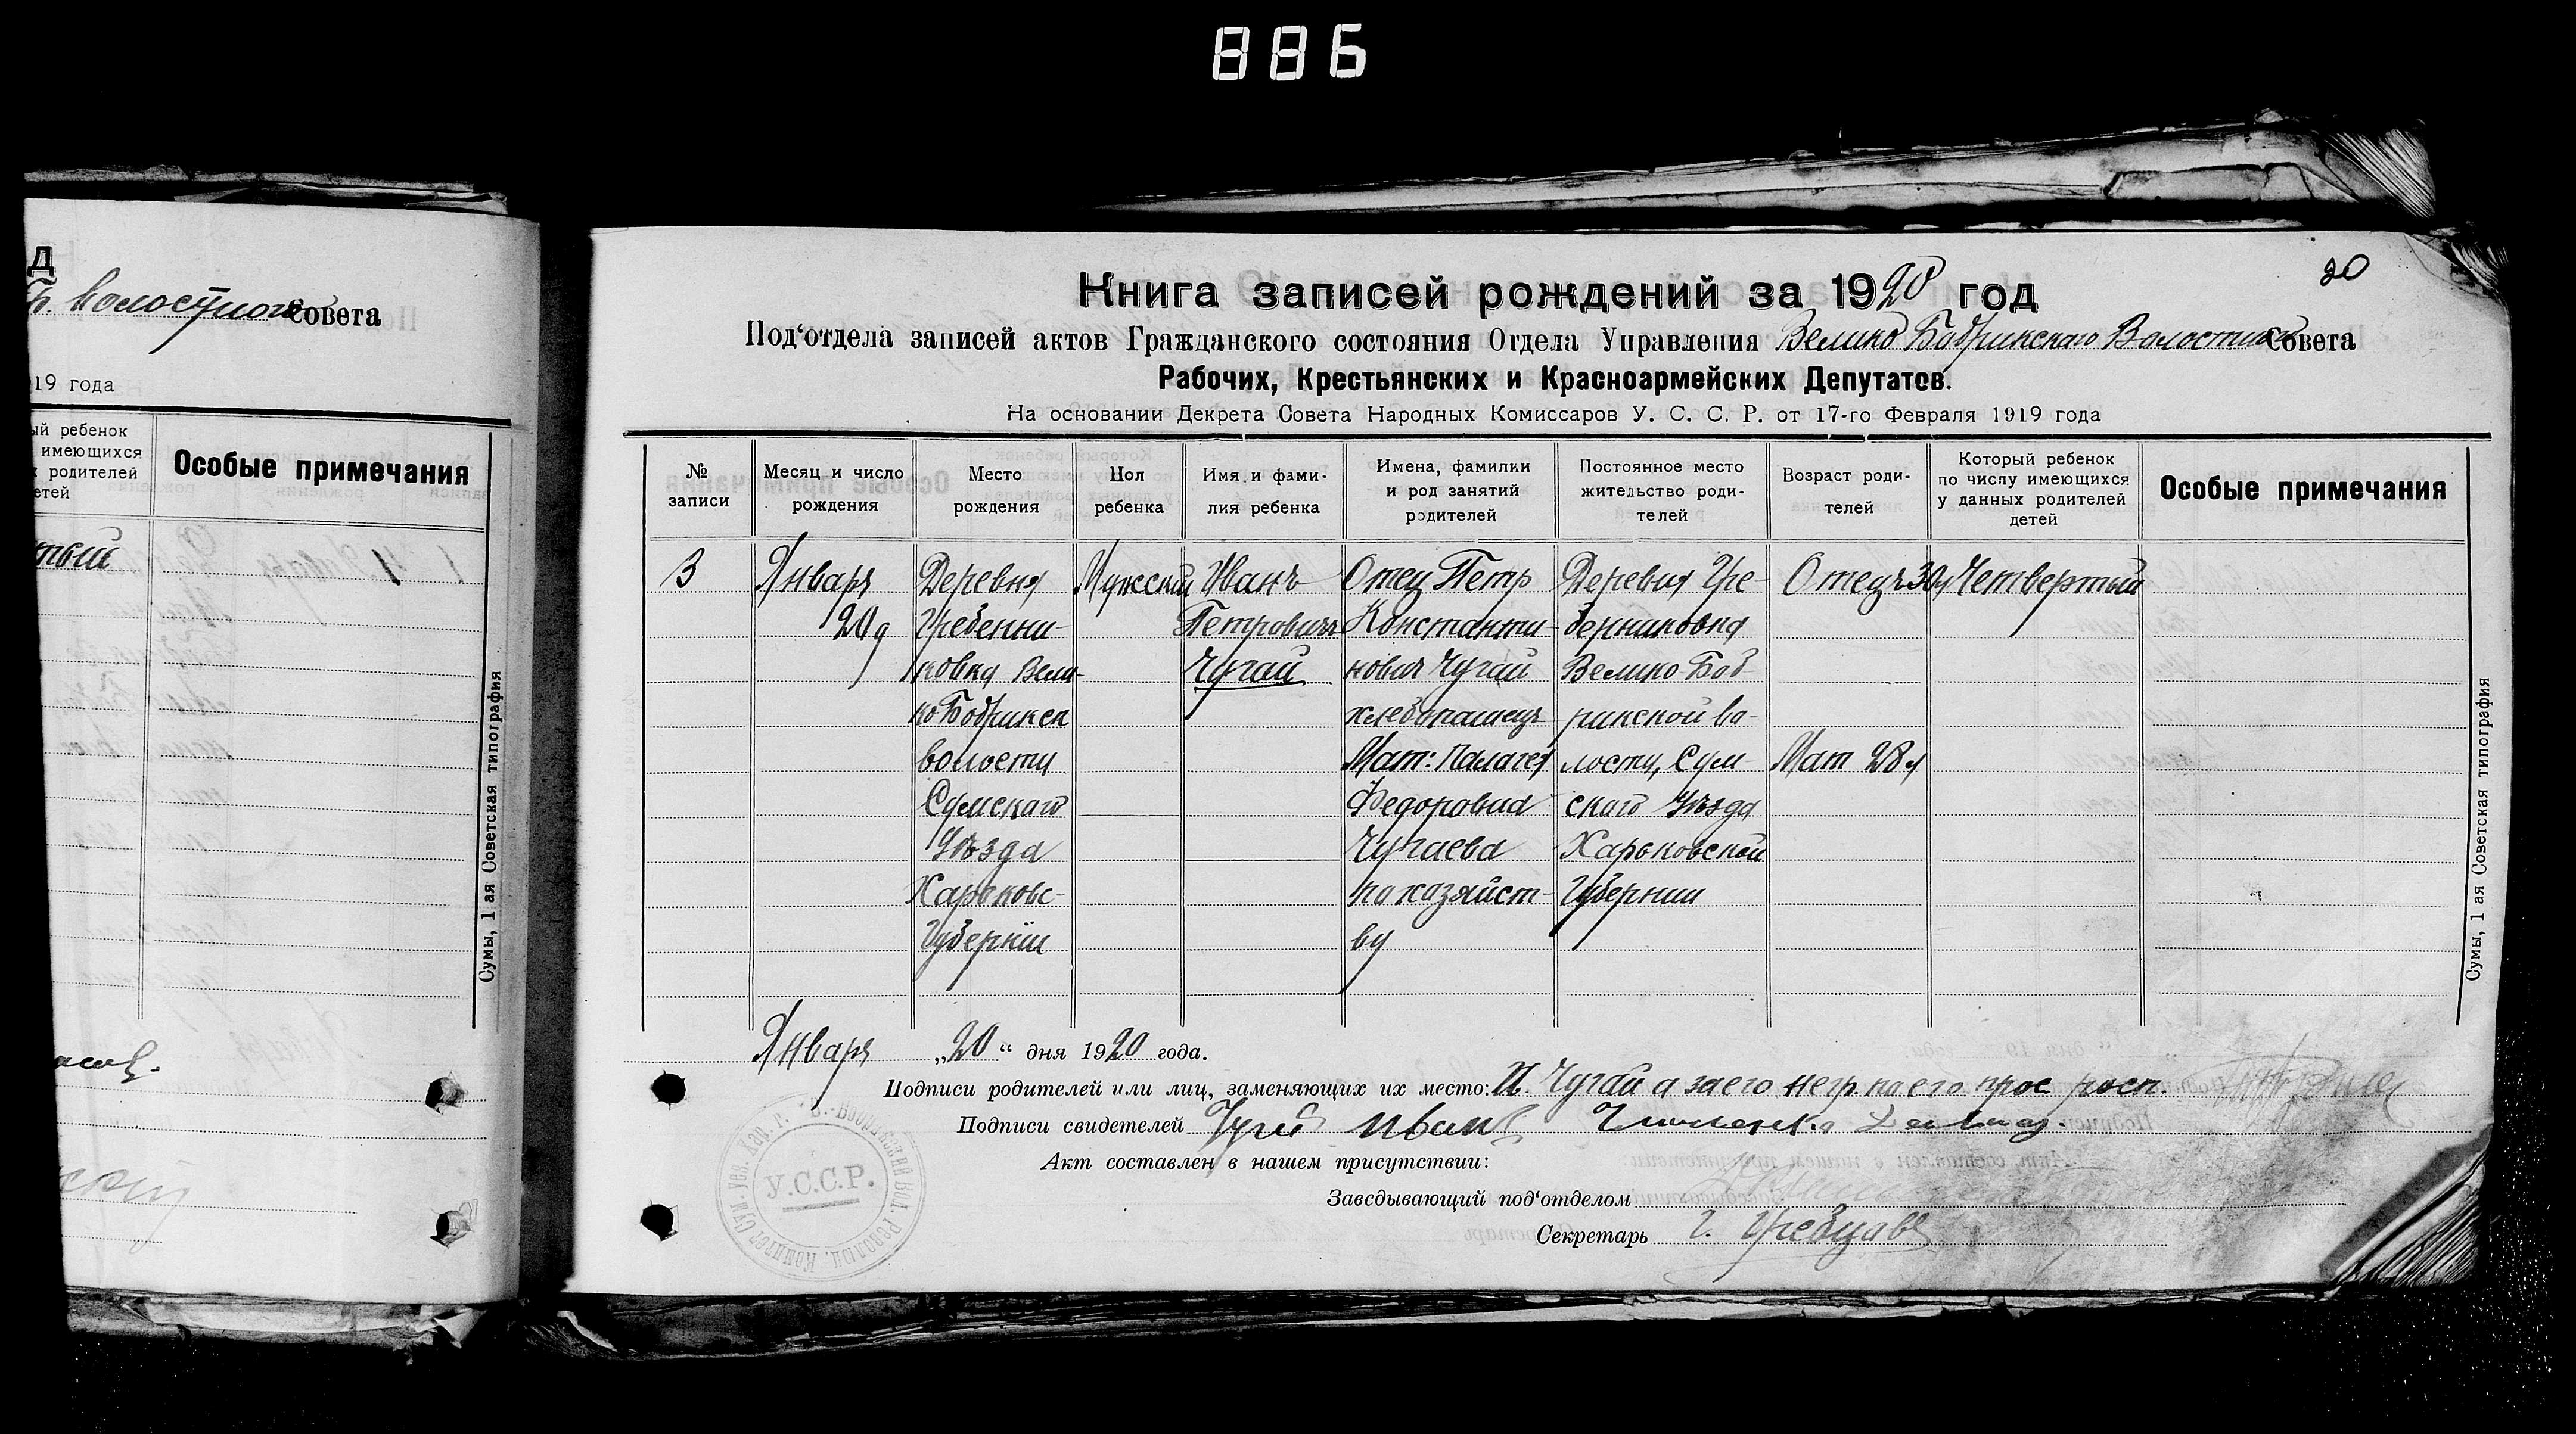 886
д
Волостного совета
19 года
ый ребенок
имеющихся
родителей
етей
Особые примечания
тый
Сумы, 1 ая Советская типография
20
Книга записей рождений за 1920 год
Под'отдела записей актов Гражданского состояния Отдела Управления Велико Бобринскаго Волостного совета
Рабочих, Крестьянских и Красноармейских Депутатов.
На основании Декрета Совета Народных Комиссаров У. С. С. Р. от 17-го Февраля 1919 года
№ записи
Месяц и число рождения
Место рождения
Пол ребенка
Имя и фамилия ребенка
Имена, фамилии и род занятий родителей
Постоянное место жительство родителей
Возраст родителей
Который ребенок по числу имеющихся у данных родителей детей
Особые примечания
3
Января
20д
Деревня
Гребенни-
ковка Вели-
ко Бобринск
волости
Сумскаго
Уѣзда
Харьковс-
Губерніи
Мужский
Иванъ
Петровичъ
Чугай
Отец Петр
Константи-
нович Чугай
хлебопашецъ
Мат: Палагея
Федоровна
Чугаева
по хозяйст-
ву
Деревня Гре-
бенниковка
Велико Боб-
ринской во-
лости, Сум-
ского Уѣзда
Харьковской
Губернии
Отецъ 30л
Мат 28л
Четвертый
Января „20“ дня 1920 года.
Подписи родителей или лиц, заменяющих их место: П. Чугай а за его негр. по его прос росп.
Подписи свидетелей Чугай Иван
Акт составлен в нашем присутствии:
Заведывающий под'отделом
Секретарь Г. Гребцовъ
У.С.С.Р.
Сумы, 1 ая Советская типография